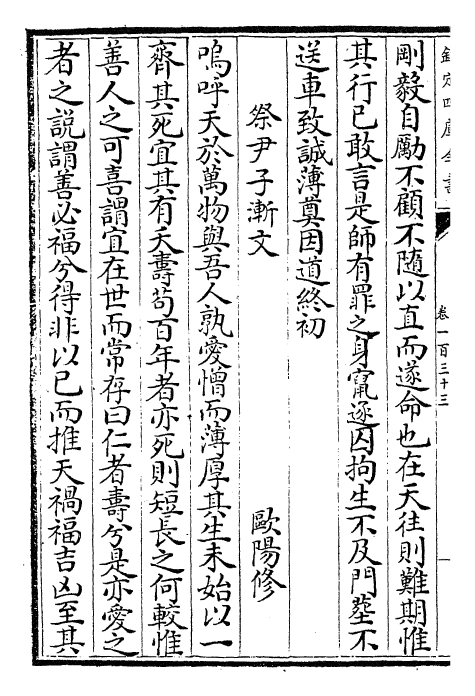 欽定四庫全書
卷一百三十三
剛毅自勵不顧不隨以直而遂命也在天往則難期惟
其行已敢言是師有罪之身竄逐囚拘生不及門塟不
送車致誠薄奠因道終初
祭尹子漸文
歐陽修
嗚呼天於萬物與吾人孰愛憎而薄厚其生未始以一
齊其死宜其有夭壽苟百年者亦死則短長之何較惟
善人之可喜謂宜在世而常存曰仁者壽兮是亦愛之
者之説謂善必福兮得非以已而推天禍福吉凶至其